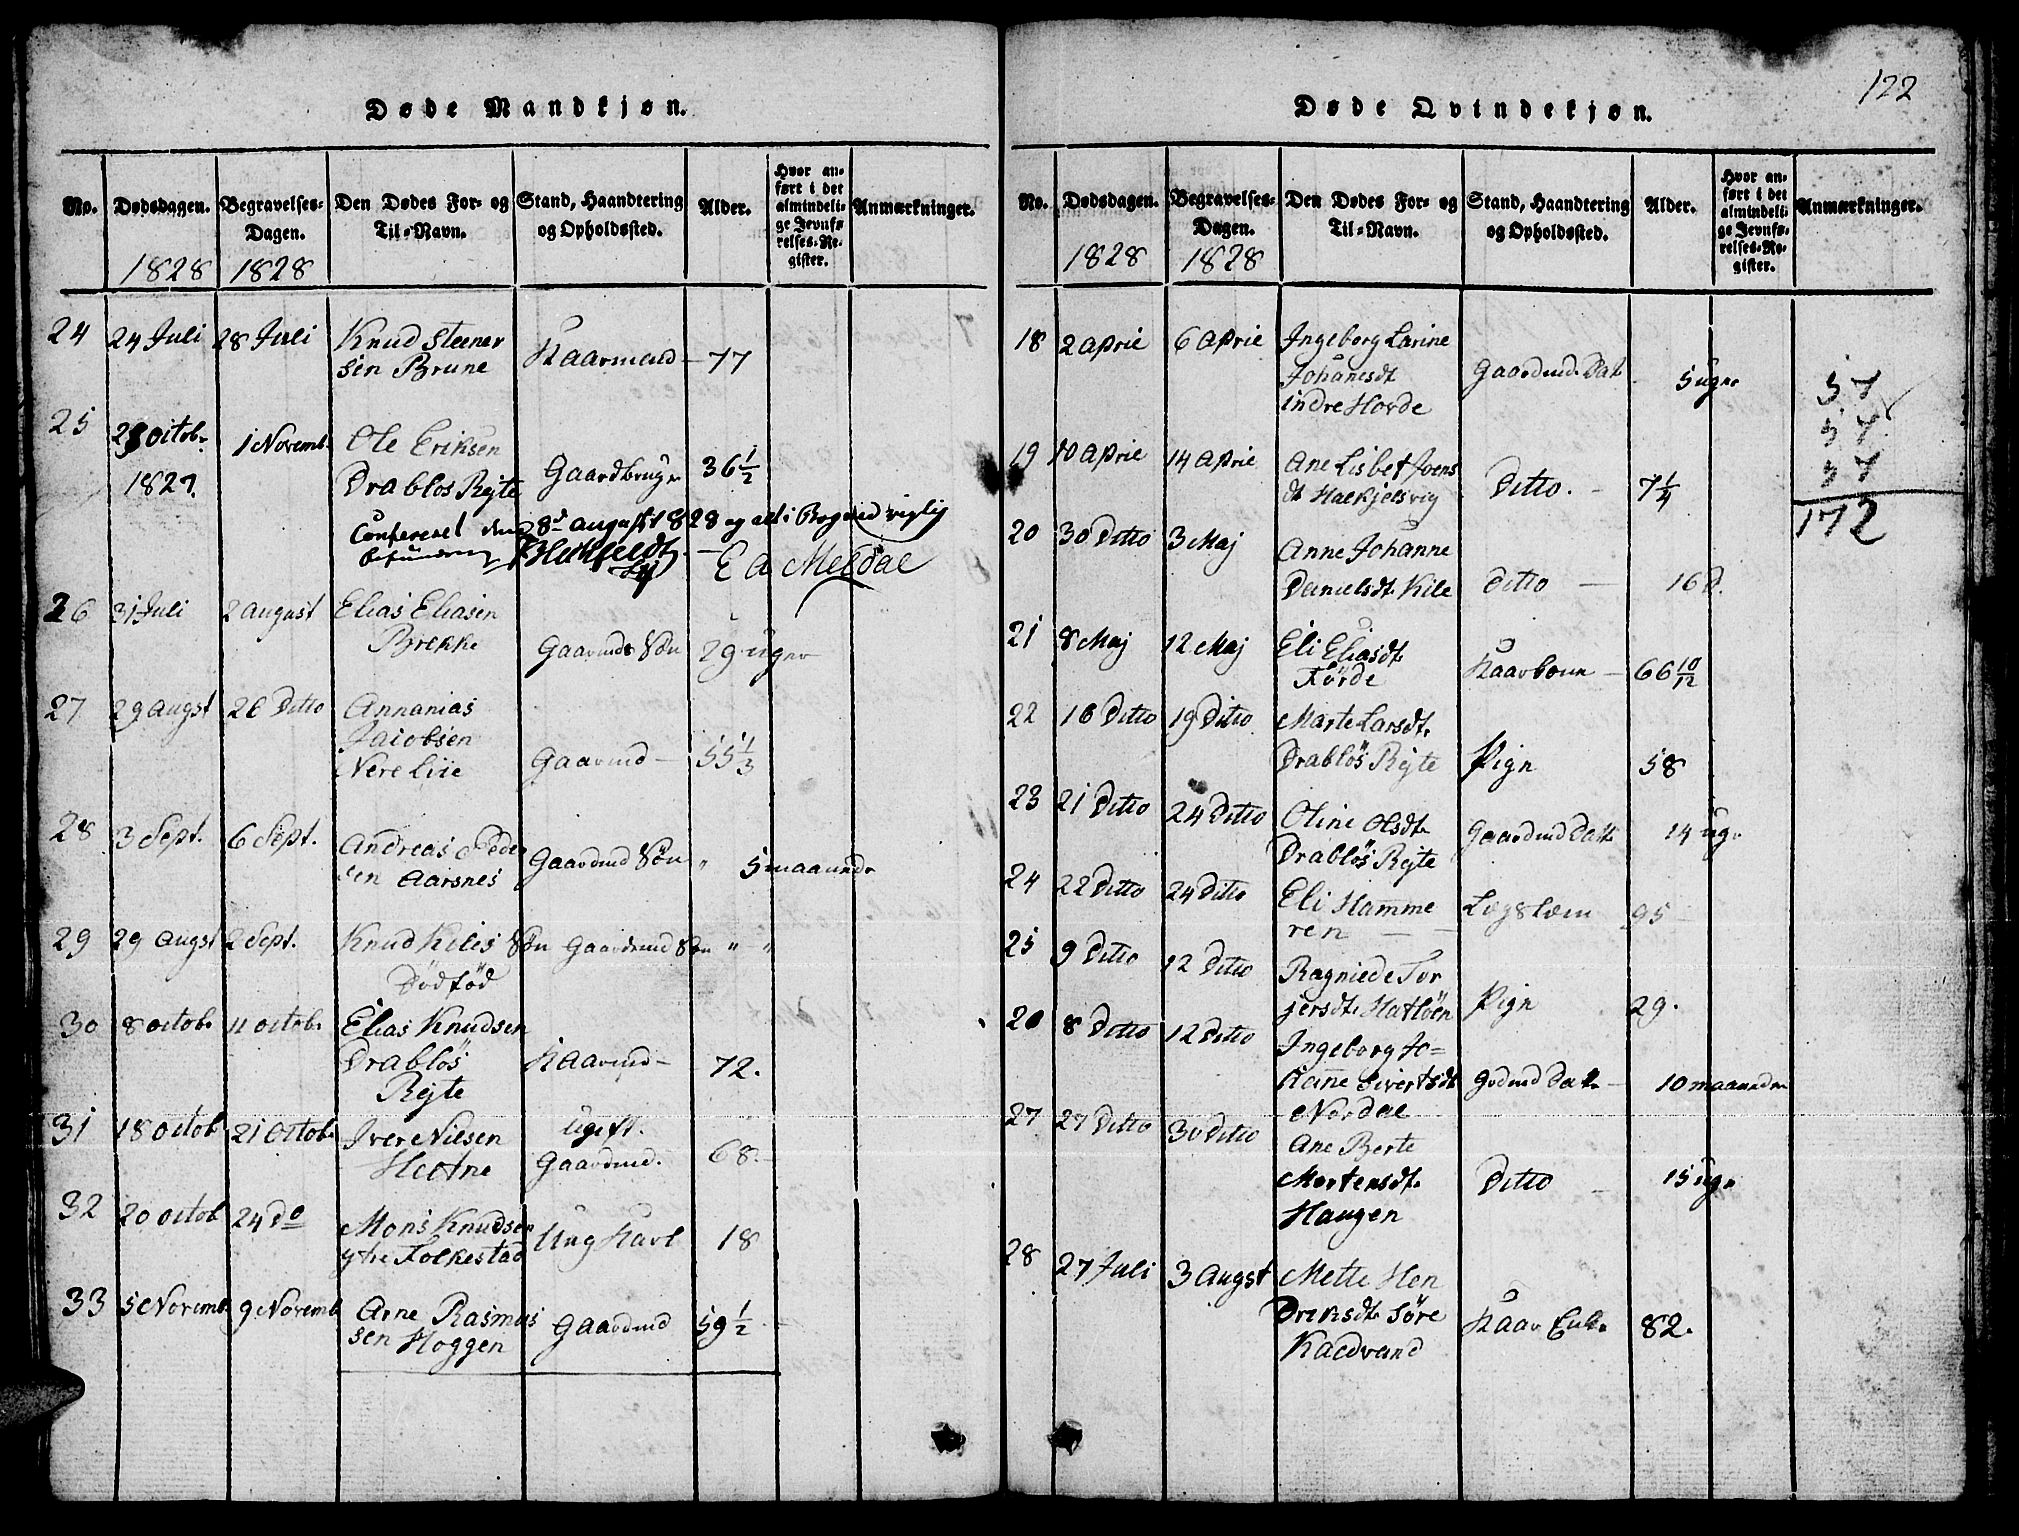 Døde Mandkjøn.
No. Dødsdagen. Begravelses-Dagen. Den Dødes For- og Til-Navn. Stand, Haandtering og Opholdssted. Alder. Hvor anført i det almindelige Jevnførelses-Register. Anmærkninger.
1828 1828
24 24 Juli 28 Juli Knud Steener
sen Brune Kaarmand - 77
25 octob. 1 Novemb. Ole Eriksen
1827. Drablos Rejte Gaardbruger 36 1/2
Confereret den 8de august 1828 og alt i Bogen rigtig
E A Meldal
26 31 Juli 2 august Elias Eliasen
Brekke Gaarmds Sön 29 uger
27 29 Augst 26 Ditto Annanias
Jacobsen
Nere Liie Gaarmd - 55 1/3
28 3 Sept. 6 Sept. Andreas Peder
sen Aarsnes Gaardmd Sön " 5 maander
29 29 Augst 2 Sept. Knud Kiles Sön Gaardmd Sön " "
Dödföd
30 8 octob. 11 octob. Elias Knudsen
Drablös
Rejte Kaarmd - 72.
31 18 octob 21 octob. Iver Nilsen ugift.
Hootne Gaardmd. 68.
32 20 octob 24 Do Mons Knudsen
ytre Folkestad Ung Karl 18
33 5 Novemb. 9 Novemb. Arne Rasmus
sen Hoggen Gaardmd 59 1/2
122
Døde Qvindekjøn.
No. Dødsdagen. Begravelses-Dagen. Den Dødes For- og Til-Navn. Stand, Haandtering og Opholdssted. Alder. Hvor anført i det almindelige Jevnførelses-Register. Anmærkninger.
1828 1828
18 2 April 6 April Ingeborg Larine
Johanesdt
indre Horde Gaardmd. Dat. 5 uger
19 10 April 14 April Ane Lisbet Joens
dt Halkjelsvig Ditto. - 7 1/4
20 30 Ditto 3 Maj Anne Johanne
Danielsdt. Kile Ditto - 16 D.
21 8 Maj 12 Maj Eli Eliasdt.
Förde Kaarkone - 66 10/12
22 16 Ditto 19 Ditto Marte Larsdt.
Drablös Rejte Pige 58
23 21 Ditto 24 Ditto Oline Olsdt.
Drablös Rejte Gaardmd Datt 14 ug.
24 22 Ditto 24 Ditto Eli Hamme
ren - Lægslem 95 -
25 9 Ditto 12 Ditto Ragniede Tor
jersdt. Hatlöen Pige 29.
26 8 Ditto 12 Ditto Ingeborg Jo=
hanne Sivertsdt. Gdmd Dat. - 10 maander
Nordal
27 27 Ditto 30 Ditto Ane Berte
Mortensdt. Ditto - 15 uger
Haugen
28 27 Juli 3 Augst Mette Hen
driksdt. Söre
Kaldvand Kaar Enke 82.
57
57
57
172